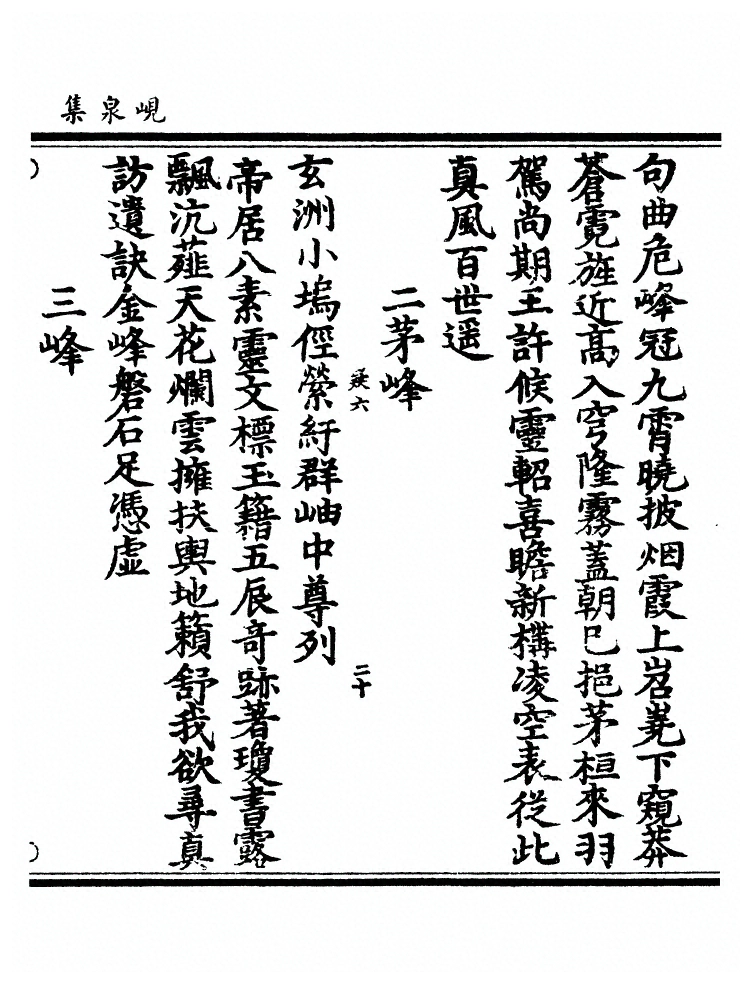 峴泉集
句曲危峰冠九霄曉披烟霞上岧嶤下窺莽
蒼霓旌近髙入穹隆霧蓋朝已挹茅桓來羽
駕尚期王許候靈軺喜瞻新構凌空表從此
真風百世遥
二茅峰
䇲六
二十
玄洲小塢徑縈紆群岫中尊列
帝居八素靈文標玉籍五辰奇跡著瓊書露
飄沆薤天花爛雲擁扶輿地籟舒我欲尋真
訪遺訣金峰磐石足憑虛
三峰